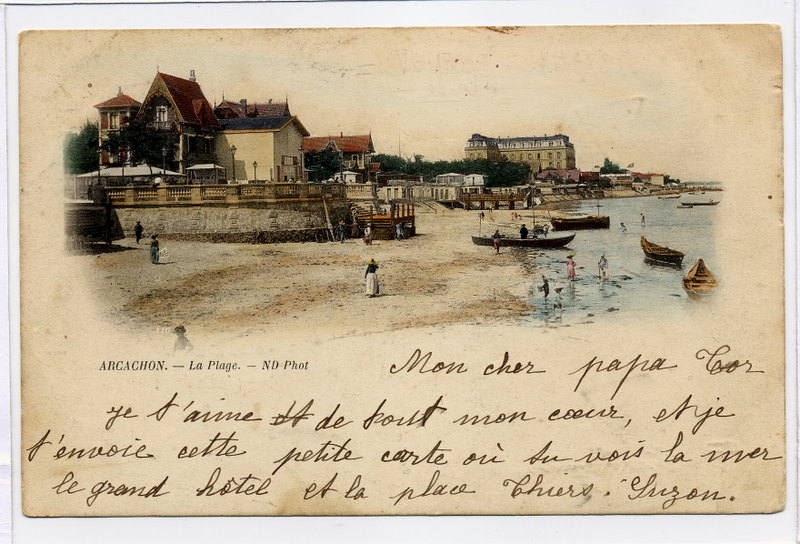 ARCACHON. — La Plage. — ND Phot
Mon cher papa Tor
je t'aime et de tout mon cœur, et je
t'envoie cette petite carte où tu vois la mer
le grand hôtel et la place Thiers. Suzon.